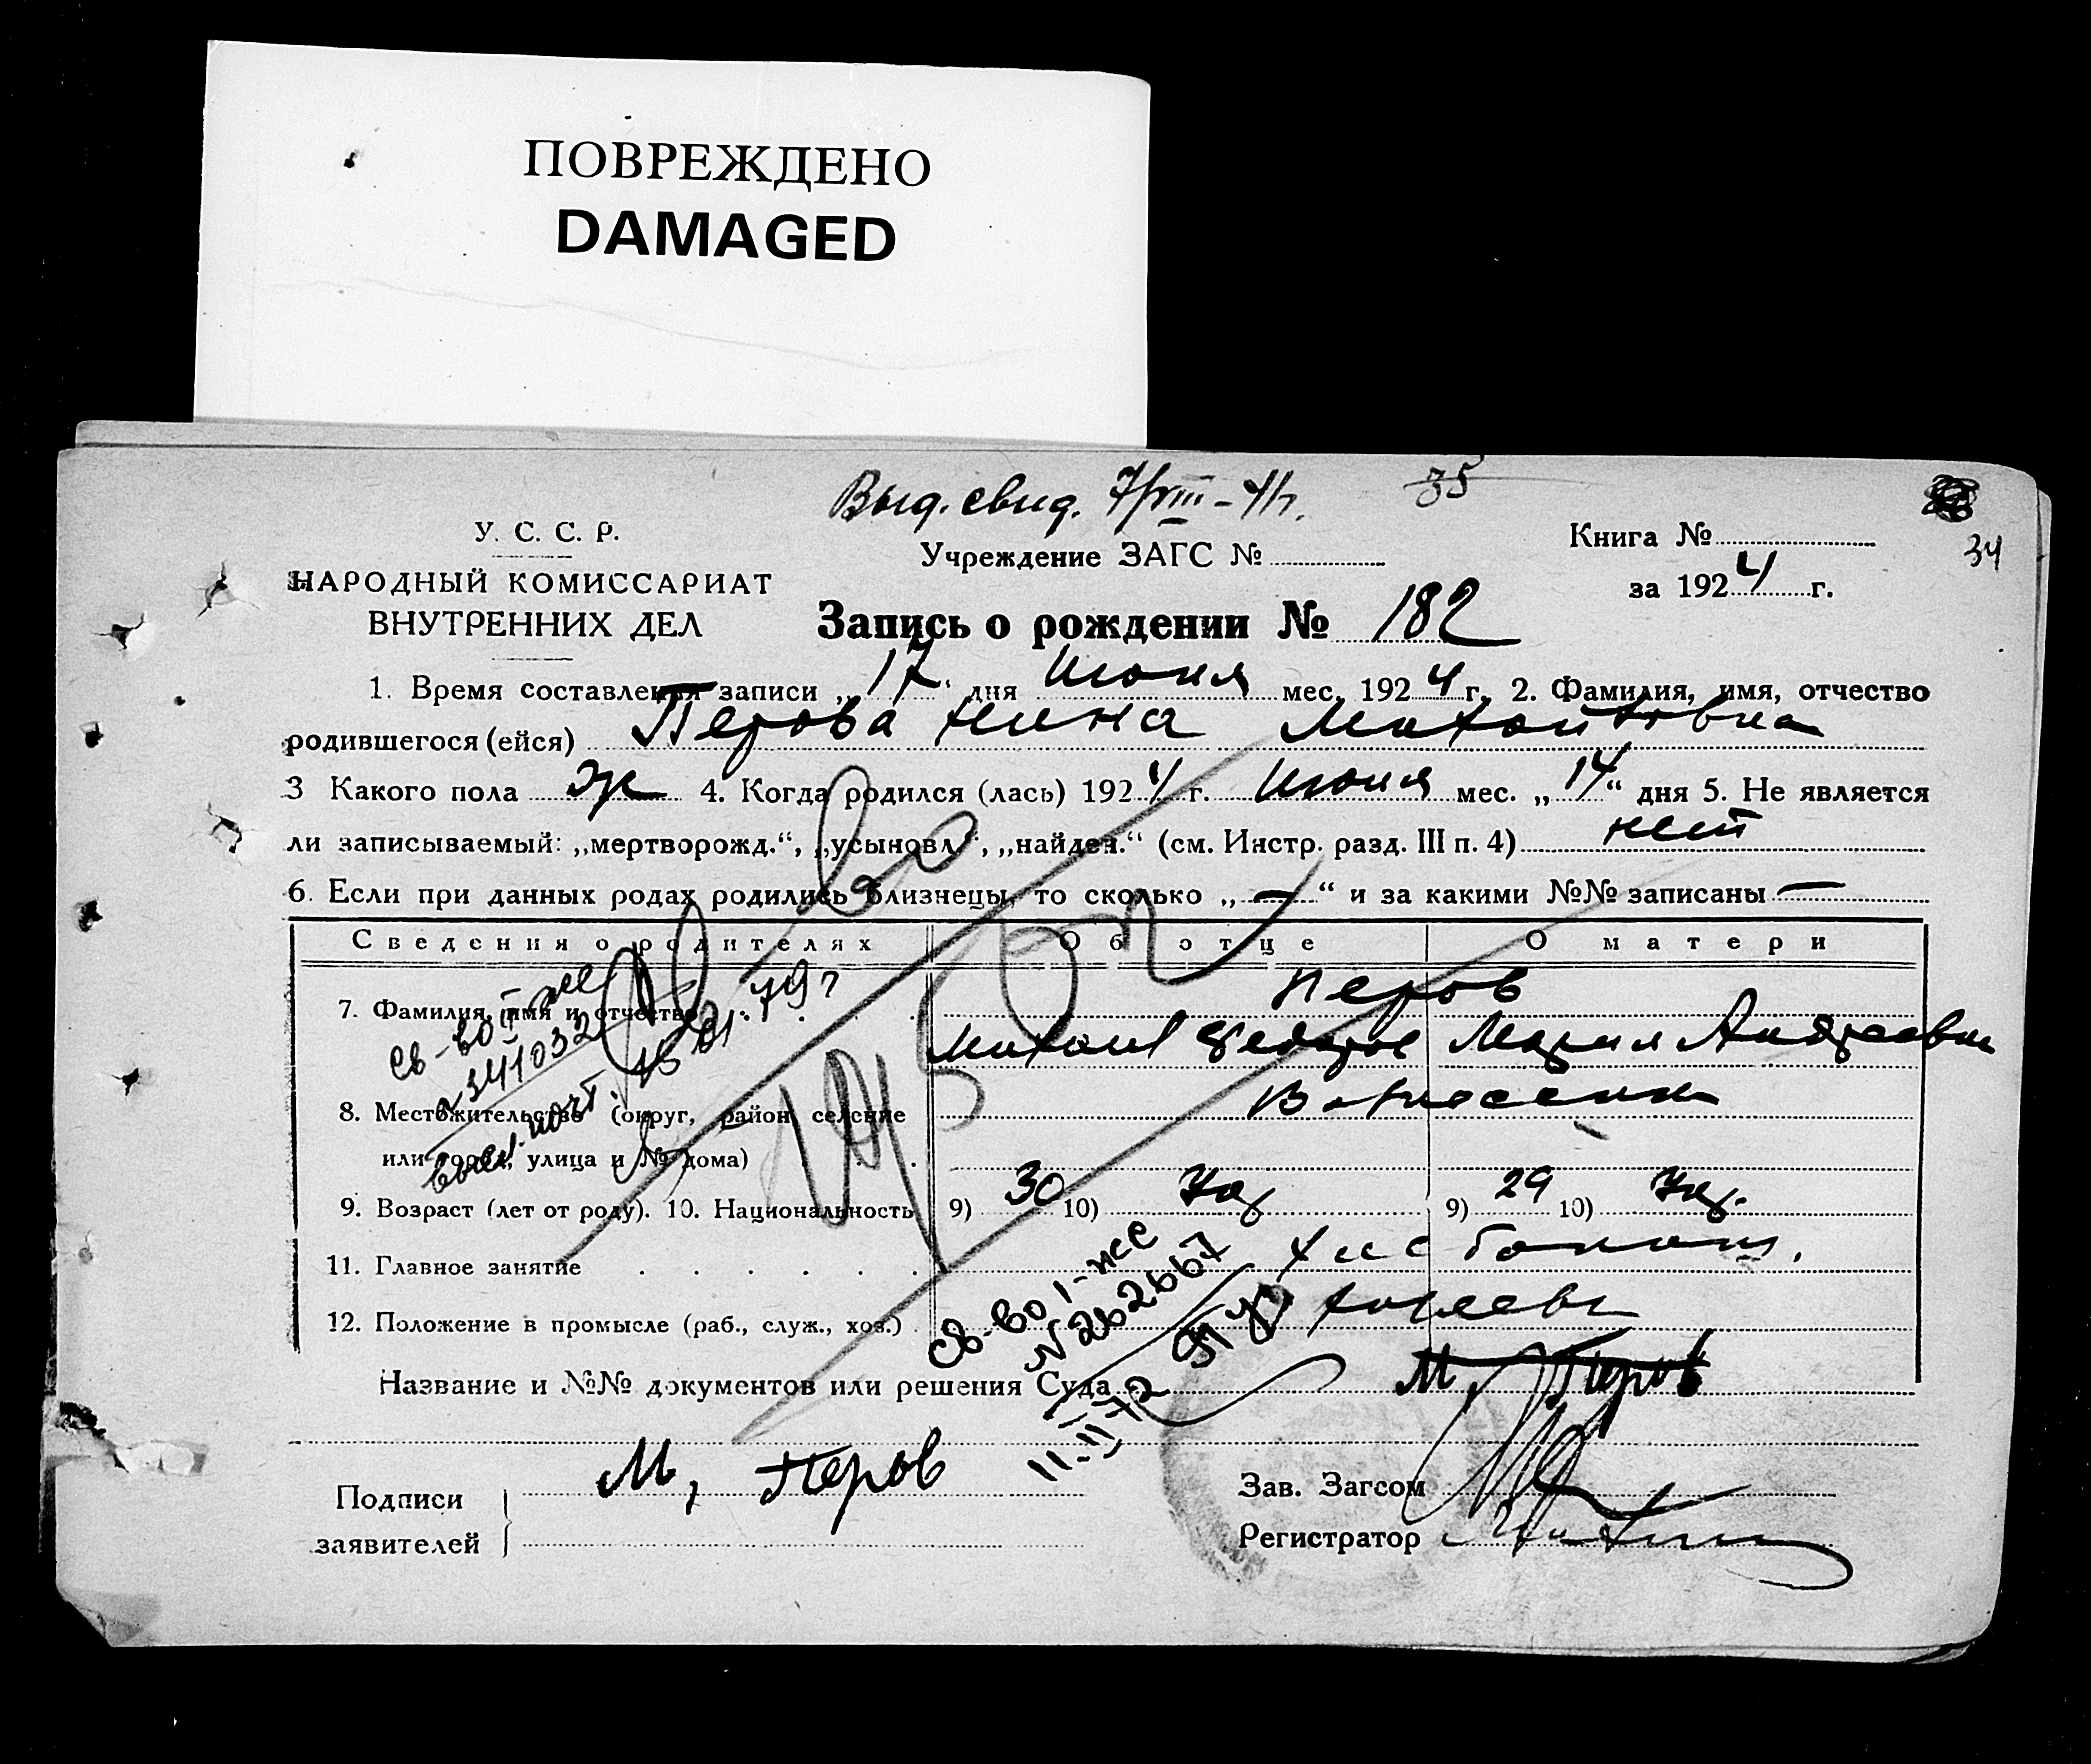 ПОВРЕЖДЕНО
DAMAGED
Выд. свид. 7/VIII-41г. 35
У. С. С. Р.
Учреждение ЗАГС №
Книга №
34
НАРОДНЫЙ КОМИССАРИАТ
за 1924 г.
ВНУТРЕННИХ ДЕЛ
Запись о рождении № 182
1. Время составления записи „17“ дня Июня мес. 1924 г. 2. Фамилия, имя, отчество
родившегося (ейся) Перова Нина Михайловна
3 Какого пола ж 4. Когда родился (лась) 1924 г. Июня мес. „14“ дня 5. Не является
ли записываемый: „мертворожд.“, „усыновл.“, „найден.“ (см. Инстр. разд. III п. 4) нет
6. Если при данных родах родились близнецы, то сколько „—“ и за какими №№ записаны —
Сведения о родителях Об отце О матери
7. Фамилия, имя и отчество Перов
Михаил Федоров Мария Андреевна
8. Местожительство (округ, район, селение
или город, улица и № дома)
9. Возраст (лет от роду). 10. Национальность 9) 30 10) 9) 29 10)
11. Главное занятие
12. Положение в промысле (раб., служ., хоз.)
Св-во I-ое
№ 3411032
18 01 79г
Св-во I-ое
№ 262667
11-II-72
Название и №№ документов или решения Суда М. Перов
Подписи заявителей М, Перов
Зав. Загсом
Регистратор